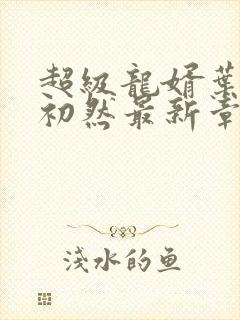 超級龍婿葉
初然最新章
淺水的鱼